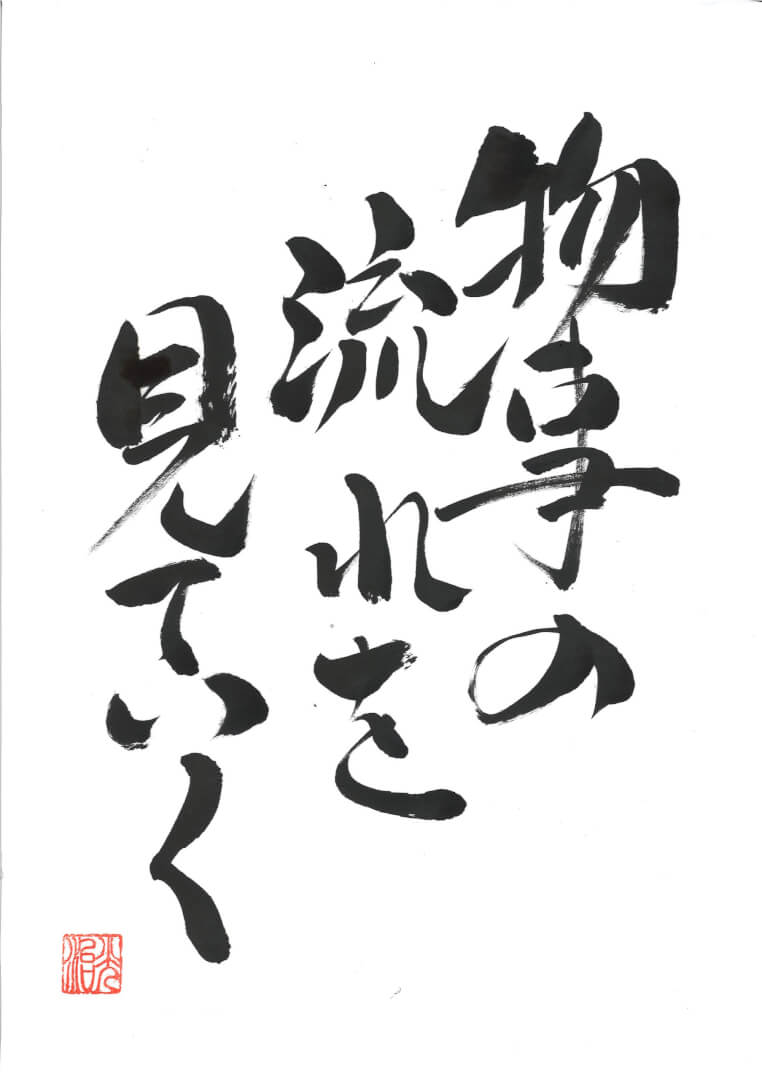 物事の
流れを
見ていく